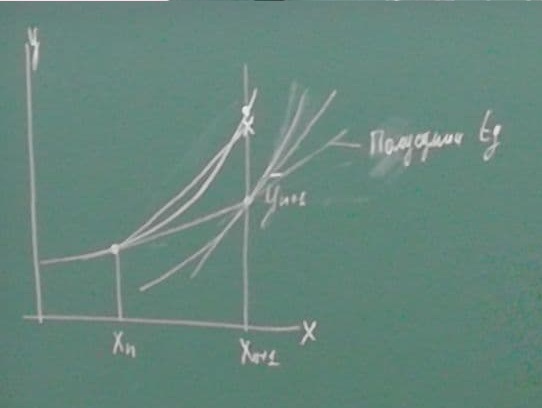 y
Полусумма tg
ỹn+1
xn
xn+1
x